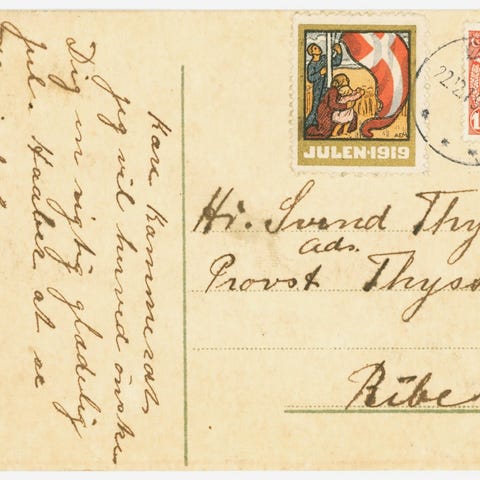 Kære Kammerat
Jeg vil herved ønske
Dig en rigtig glædelig
jul. Haaber at se
JULEN·1919
AEM
22.12
1
Hr. Svend Thy
Adr.
Provst Thyss
Ribe